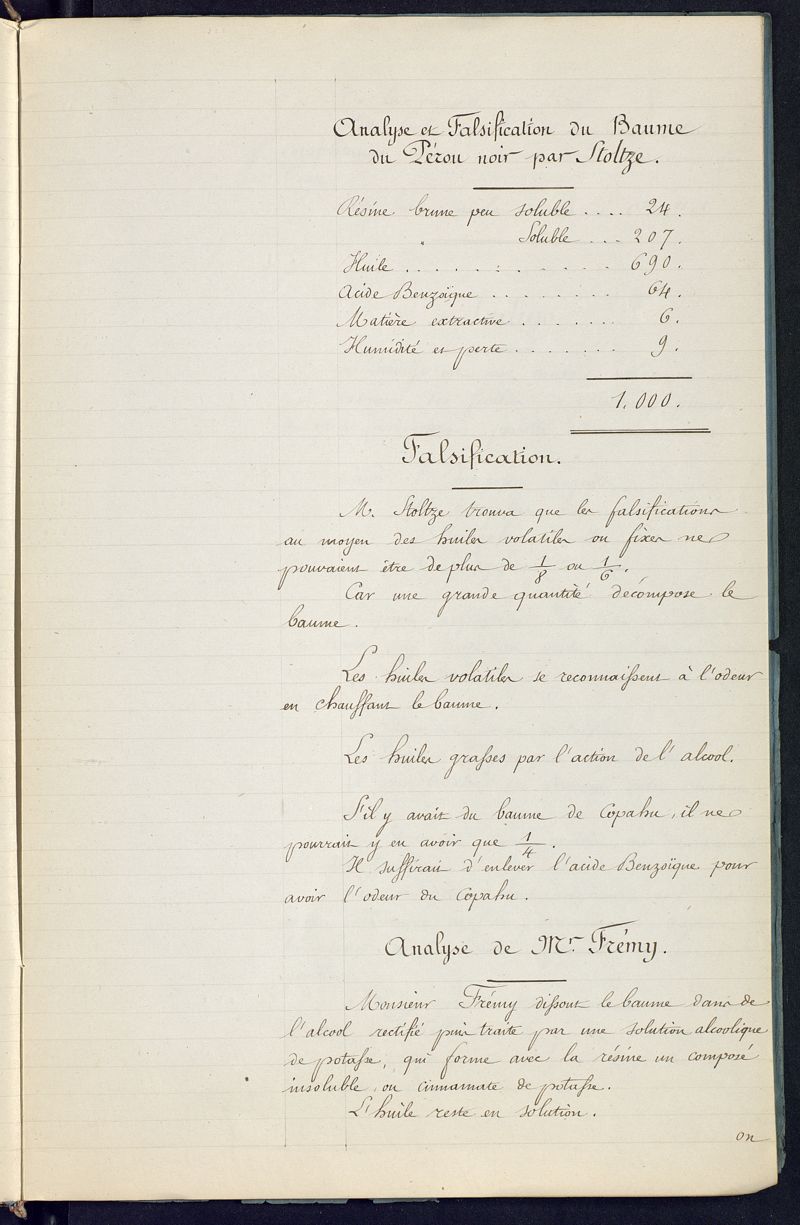 Analyse et Falsification du Baume
du Pérou noir par Stoltze.
Résine brune peu soluble .... 24.
" Soluble ... 207.
Huile ............ 690.
Acide Benzoïque ........ 64.
Matière extractive ...... 6.
Humidité et perte ....... 9.
1.000.
Falsification.
M. Stoltze trouva que les falsifications
au moyen des huiles volatiles ou fixes ne
pouvaient être de plus de 1/8 ou 1/6.
Car une grande quantité décompose le
baume.
Les huiles volatiles se reconnaissent à l'odeur
en chauffant le baume.
Les huiles grasses par l'action de l'alcool.
S'il y avait du baume de Copahu, il ne
pourrait y en avoir que 1/4.
Il suffirait d'enlever l'acide Benzoïque pour
avoir l'odeur du Copahu.
Analyse de Mr Frémy.
Monsieur Frémy dissout le baume dans de
l'alcool rectifié puis traite par une solution alcoolique
de potasse, qui forme avec la résine un composé
insoluble ou cinnamate de potasse.
L'huile reste en solution.
on